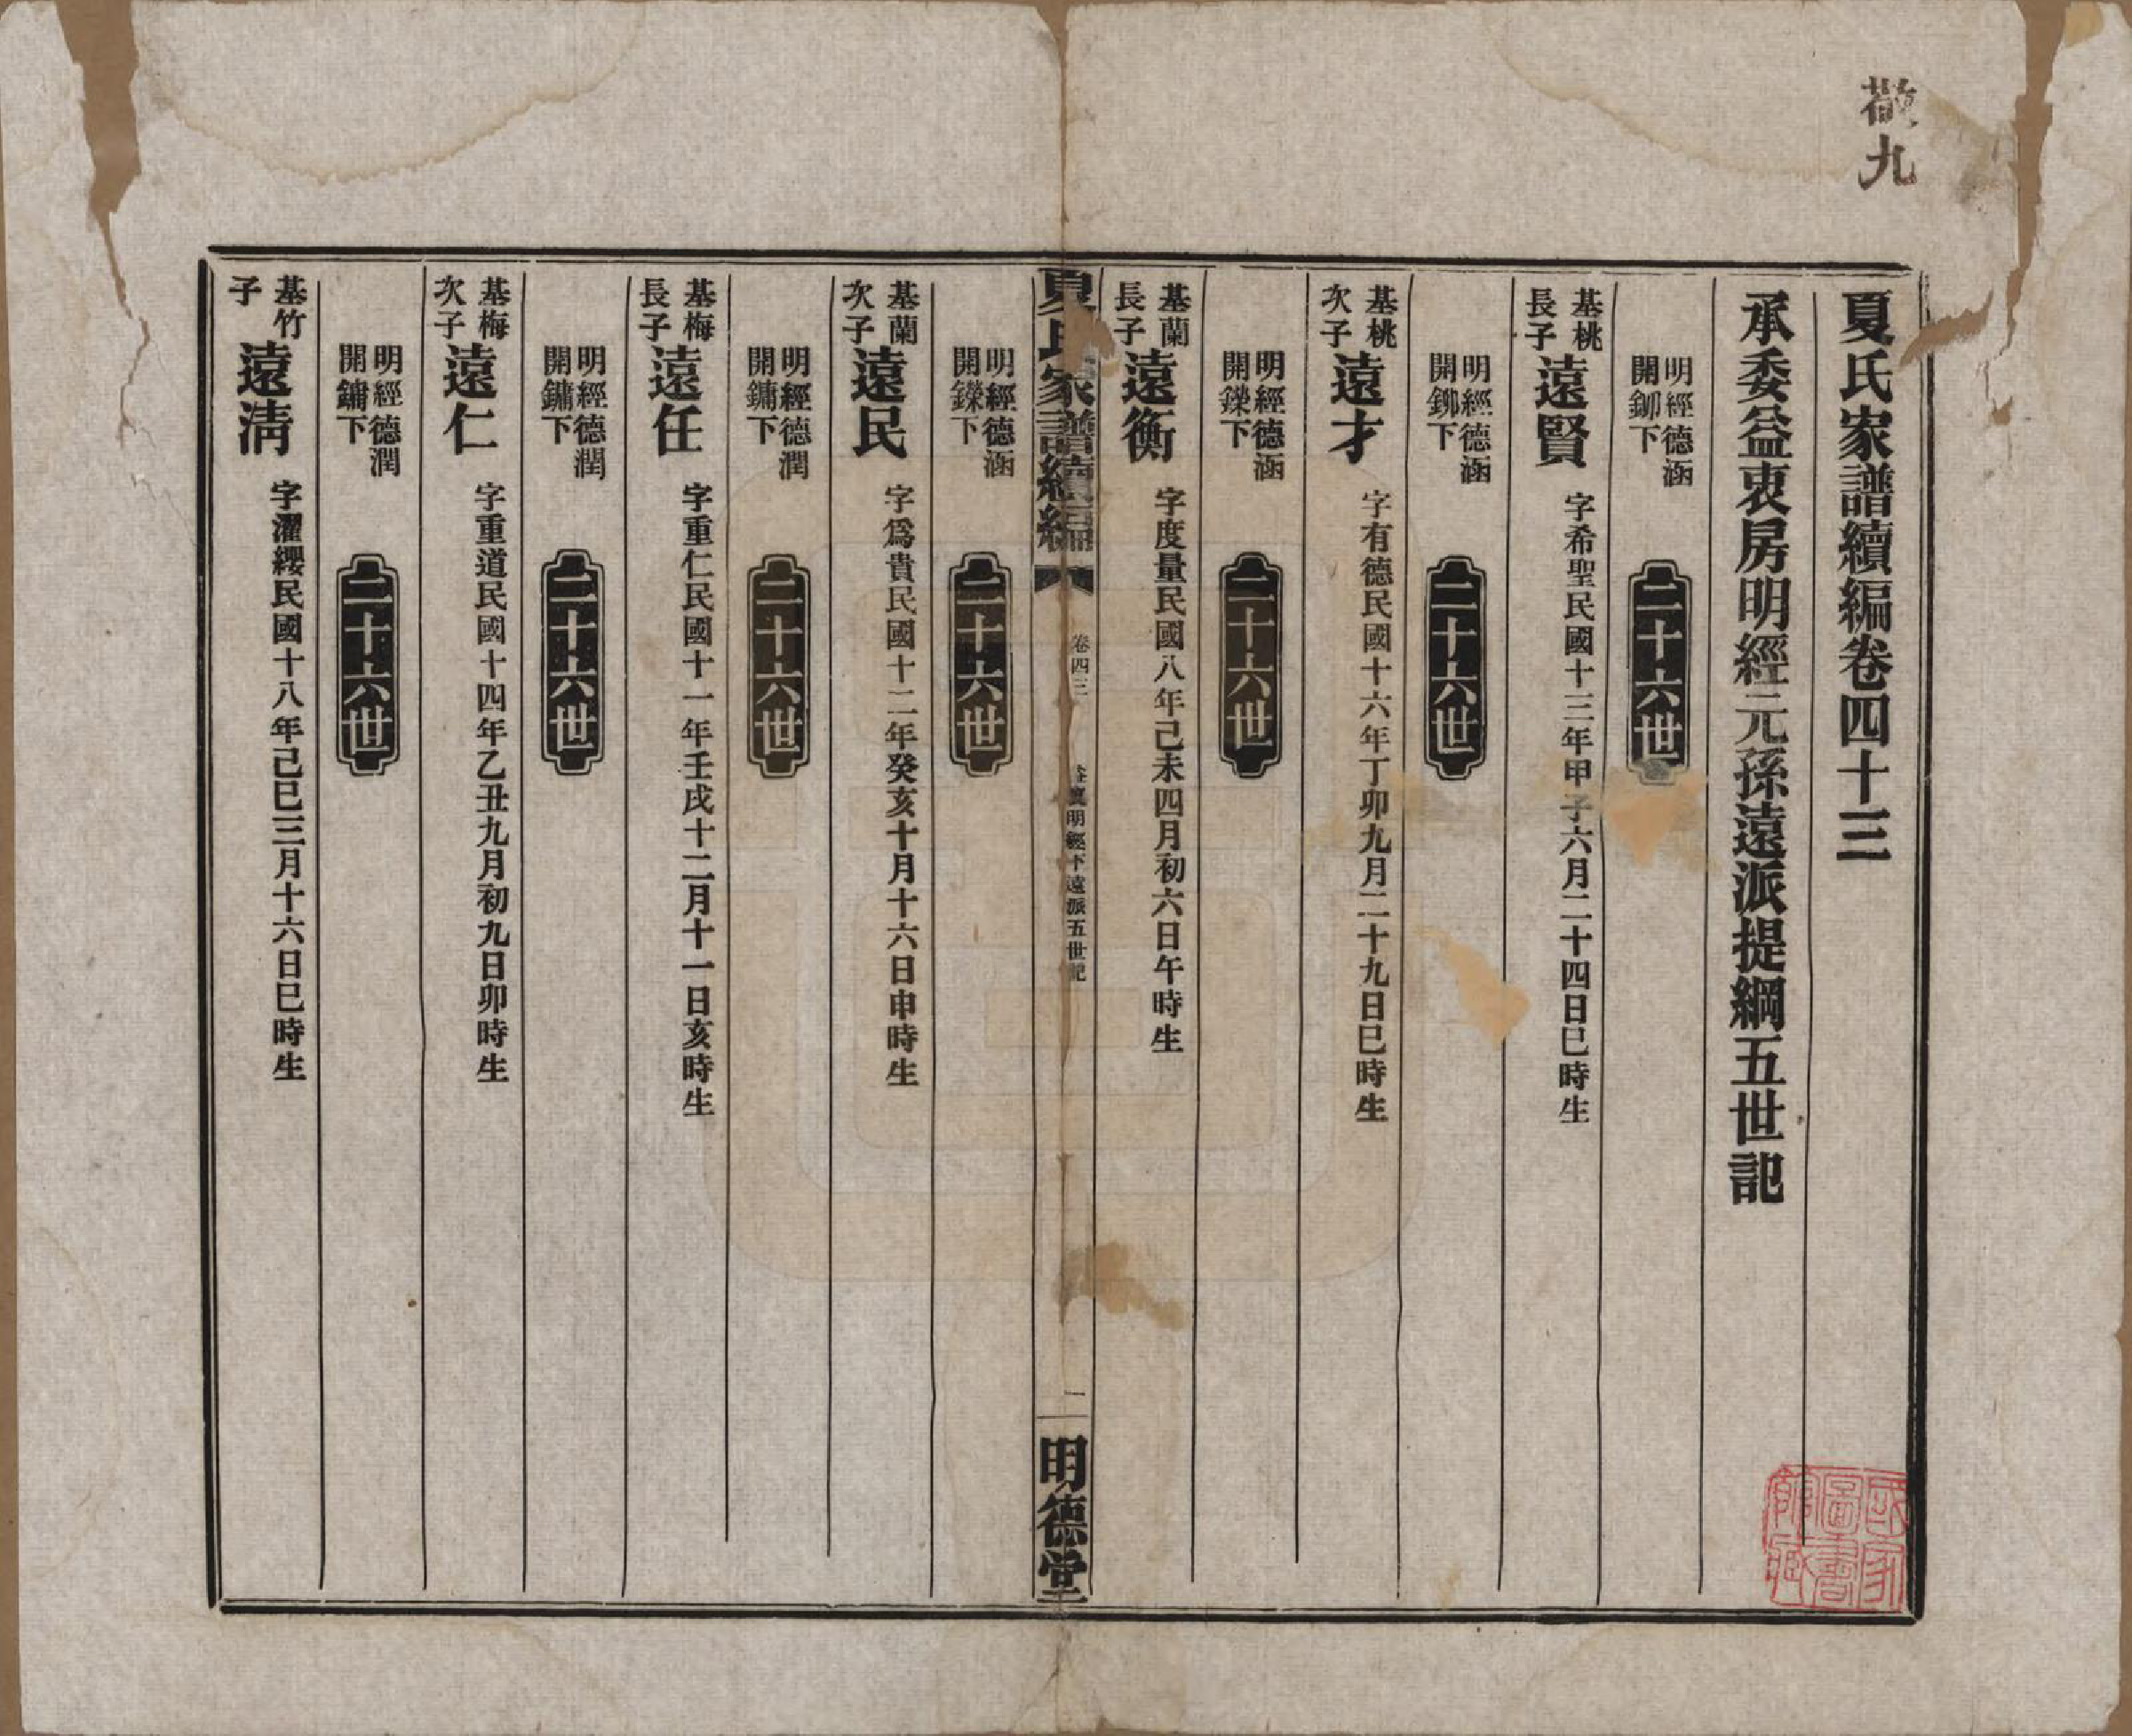 九
夏氏家譜續編卷四十三
承委益衷房明經元孫遠派提綱五世記
明經德涵
開鉚下
二十六世
基桃
長子
遠賢
字希聖民國十三年甲子六月二十四日巳時生
明經德涵
開鉚下
二十六世
基桃
次子
遠才
字有德民國十六年丁卯九月二十九日巳時生
明經德涵
開鑅下
二十六世
基蘭
長子
遠衡
字度量民國八年己未四月初六日午時生
夏氏家譜續編
卷四三
明經下遠派五世記
一
明德堂
明經德涵
開鑅下
二十六世
基蘭
次子
遠民
字為貴民國十二年癸亥十月十六日申時生
明經德潤
開鏞下
二十六世
基梅
長子
遠任
字重仁民國十一年壬戌十二月十一日亥時生
明經德潤
開鏞下
二十六世
基梅
次子
遠仁
字重道民國十四年乙丑九月初九日卯時生
明經德潤
開鏞下
二十六世
基竹
子
遠清
字濯纓民國十八年己巳三月十六日巳時生
國家
圖書
館藏